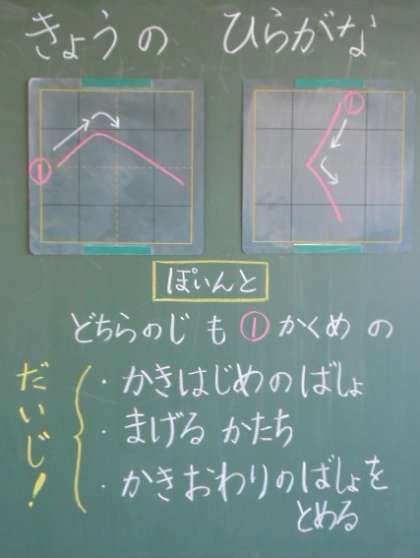 きょうの ひらがな
①
①
ぽいんと
どちらのじも①かくめの
だいじ!
・かきはじめのばしょ
・まげるかたち
・かきおわりのばしょを
とめる